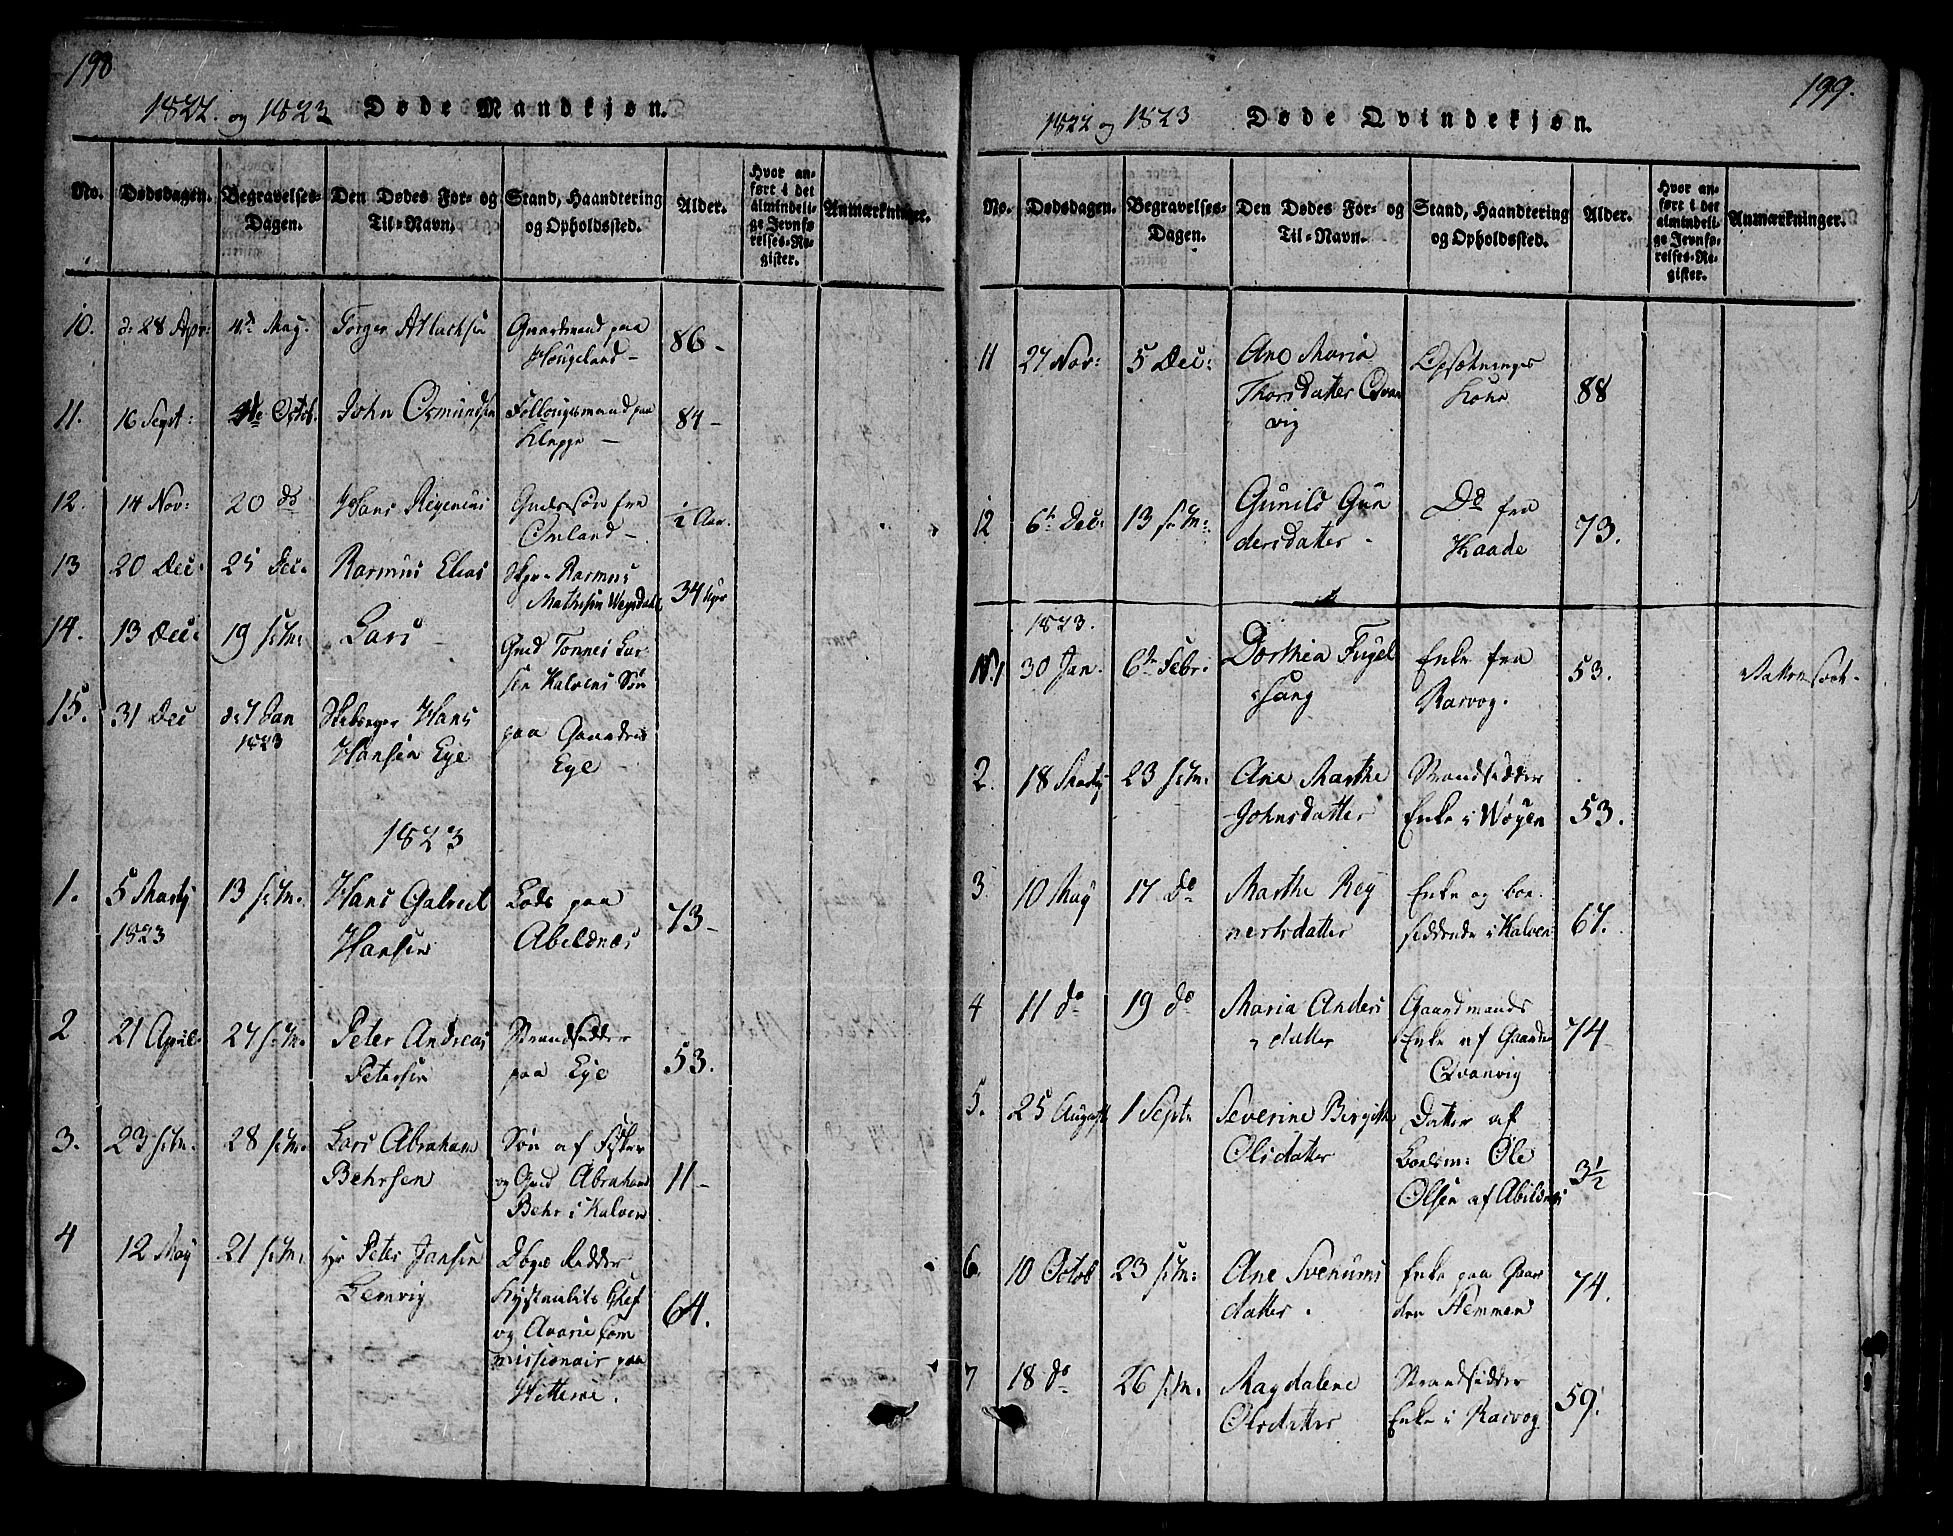 198
1822. og 1823 Døde Mandkjøn.
No. Dødsdagen. Begravelses-Dagen. Den Dødes For- og Til-Navn. Stand, Haandtering og Opholdssted. Alder. Hvor anført i det almindelige Jevnførelses-Register. Anmærkninger.
10. d: 28 Apr: 4de May: Torger Atlachsen Gaardmand paa
Hougeland - 86 -
11. 16 Sept: Octob. John Osmundsen Follougsmand paa
Kleppe - 84 -
12. 14 Nov: 20 do Hans Regenius Gudssøn fra
Omland - 1/2 Aar.
13 20 Dec: 25 Dec. Rasmus Elias Rasmus
Mathisen 34 Uger
14. 13 Dec: 19 s: M: Lars - Gmd Tonnes Lar-
sen Kalvens Søn
15. 31 Dec d: 7 Jan Hans paa Gaarden
1823 Hansen Eye Eye -
1823
1. 5 Martj 13 s: M. Hans Gabreel Lods paa
1823 Hansen Abeldnæs 73 -
2 21 April. 27 s: M. Peter Andreas Strandsidder
Petersen paa Eye 53.
3. 23 s: M. 28 s: M. Lars Abraham Søn af Fisker
Behrsen og Gmd Abraham 11 -
Behr i Kalven
4 12 May 21 s: M. Hr Peter Jansen Ridder
Lemvig Chef
og Avarie Com 64.
missionair paa
Hitterøe.
199.
1822 og 1823 Døde Qvindekjøn.
No. Dødsdagen. Begravelses-Dagen. Den Dødes For- og Til-Navn. Stand, Haandtering og Opholdssted. Alder. Hvor anført i det almindelige Jevnførelses-Register. Anmærkninger.
11 27 Nov: 5 Dec: Ane Maria Opsætnings
Thorsdatter Qvan Kone 88
vig
12 6te Dec: 13 s: M: Gunild Gun Do fra
dersdatter - Kaade 73.
1823.
No. 1 30 Jan. 6te Febr: Dorthea Fugel Enke fra 53.
sang Rasvog.
2. 18 Martj 23 s: M: Ane Marthe Strandsidder
Johnsdatter Enke i Wogen 53.
3. 10 May 17 Do Marthe Rey Enke og boe-
nertsdatter siddende i Kalven 67.
4 11 do 19 do Maria Anders Gaardmands
datter Enke af Gaarden 74
Qvanvig
5. 25 August 1 Septr Severine Birgitte Datter af
Olsdatter Lodsm: Ole 3 1/2
Olsen af Abildnes
6. 10 Octob 23 s: M: Ane Svenums Enke paa Gaar
datter. den Stemmen 74.
7 18 do 26 s: M. Magdalene Strandsidder
Olsdatter Enke i Rasvog 59.